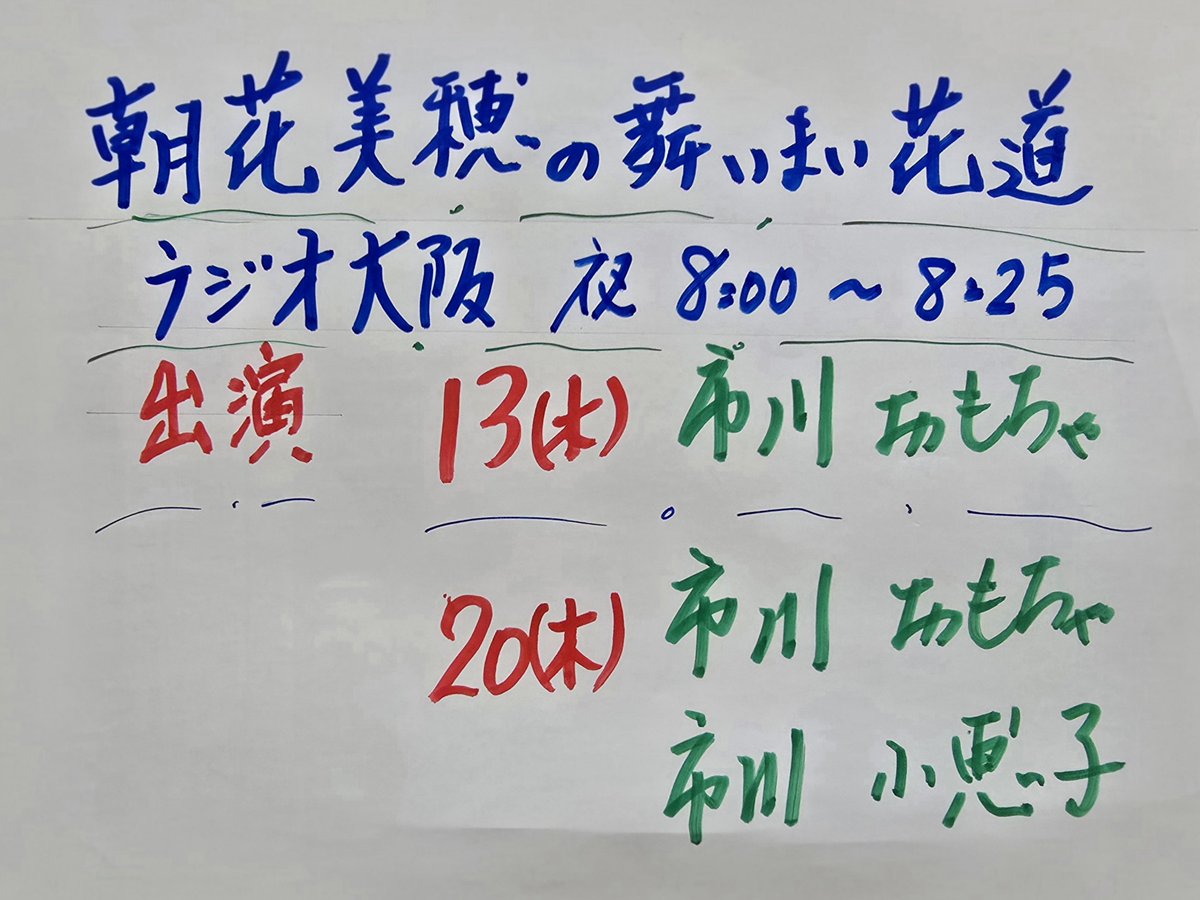 朝花美穂の舞いまい花道
ラジオ大阪 夜 8:00〜8:25
出演 13(木) 市川 おもちゃ
20(木) 市川 おもちゃ
市川 小恵子